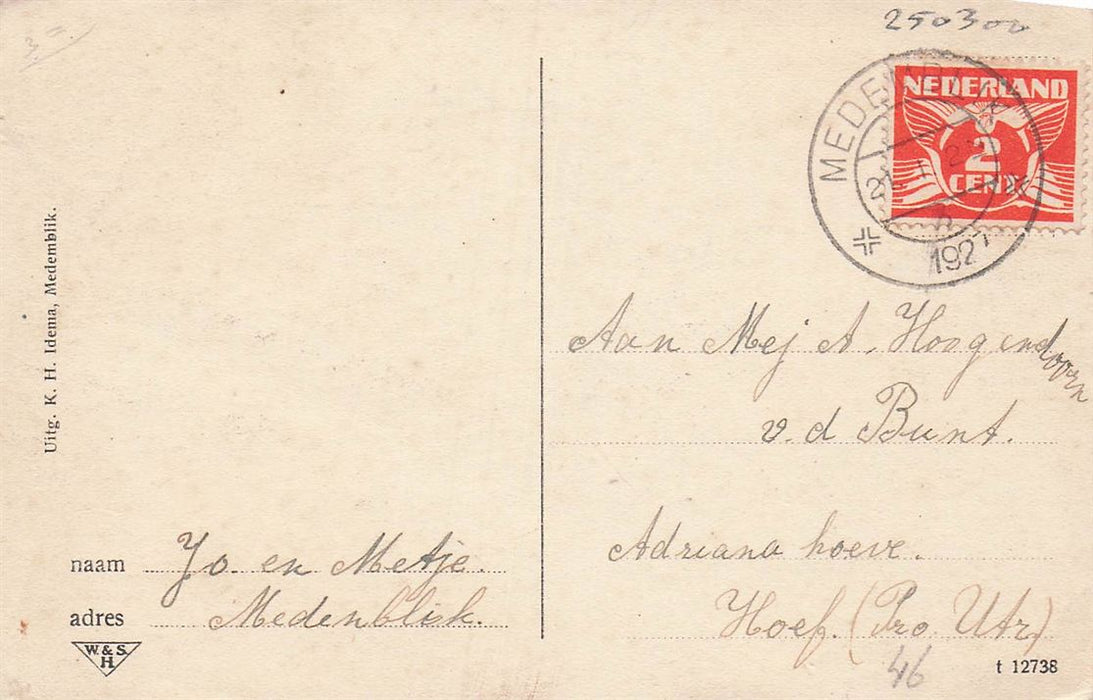 250300
NEDERLAND
2
CENT
MEDEMBLIK
1927
Uitg. K. H. Idema, Medemblik.
Aan Mej A. Hoogendoorn
v.d Bunt.
Adriana hoeve.
Hoef. (Pro Utr)
46
naam Jo. en Metje.
adres Medenblik.
W. & S.
H
t 12738